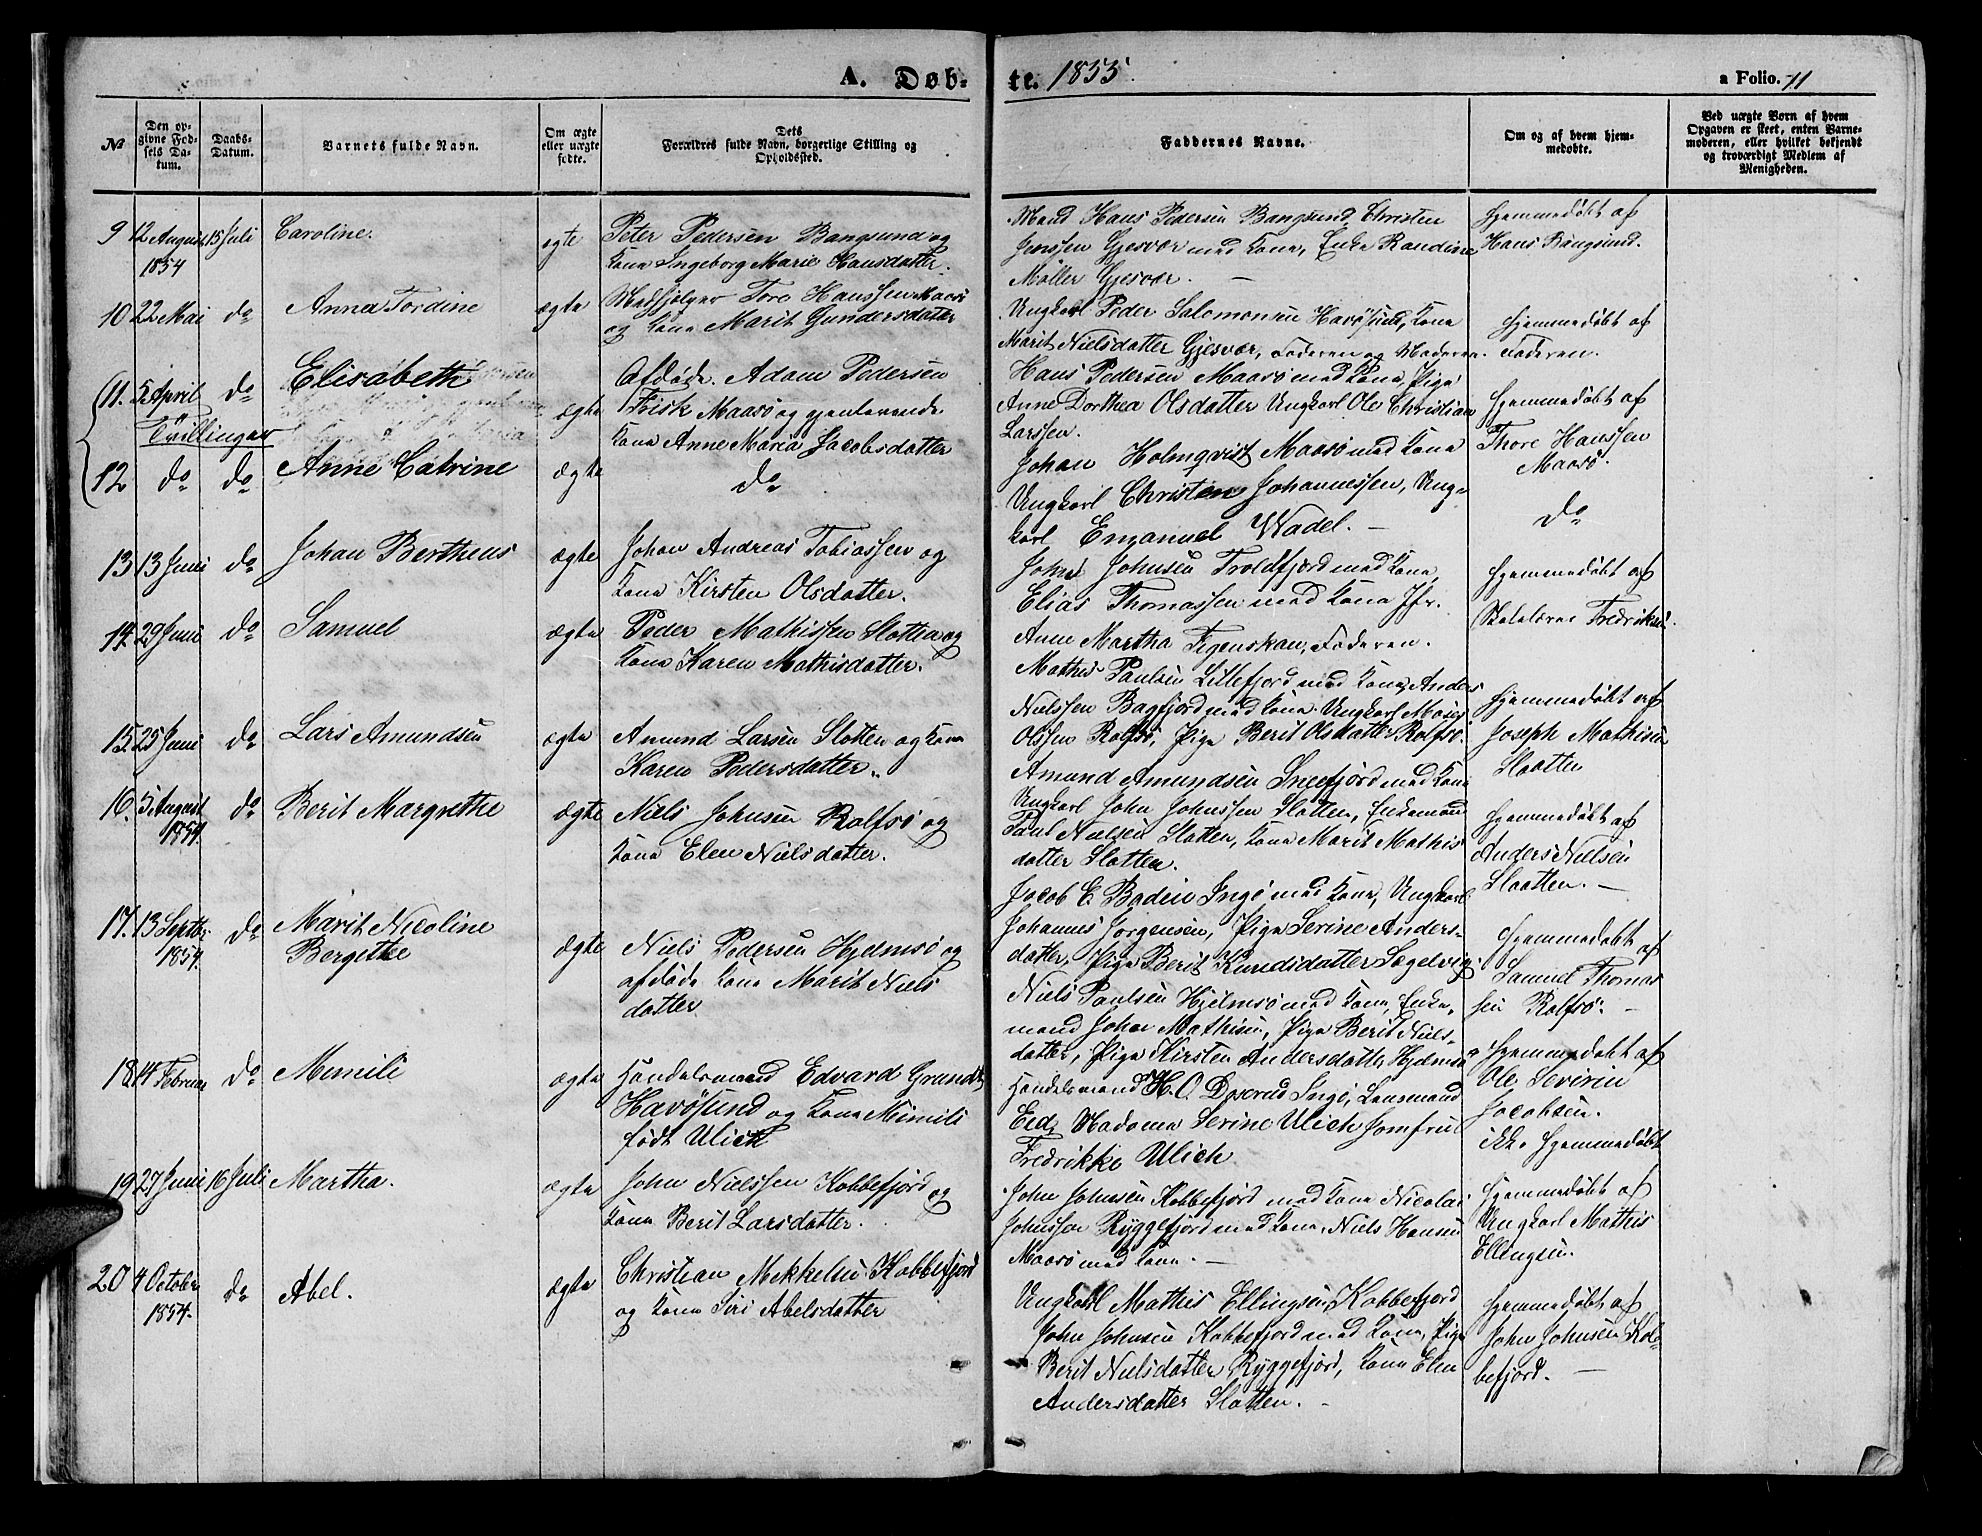 A. Døb-
te. 1855.
a Folio. 11
№
Den opgivne Fødsels Datum.
Daabs-Datum.
Barnets fulde Navn.
Om ægte eller uægte fødte.
Dets Forældres fulde Navn, borgerlige Stilling og Opholdssted.
Faddernes Navne.
Om og af hvem hjemmedøbte.
Ved uægte Børn af hvem Opgaven er skeet, enten Barnemoderen, eller hvilket bekjendt og troværdigt Medlem af Menigheden.
9 12 August 1854 15 Juli Caroline. ægte
Peter Pedersen Bangsund og
Kone Ingeborg Marie Hansdatter.
Mand Hans Pedersen Bangsund, Christen
Jenssen Gjesvær med Kone, Enke Randine
Møller Gjesvær. —
Hjemmedøbt af
Hans Bangsund.
10 22 Mai do Anna Tordine ægte
Medhjelper Tore Hanssen Maasø
og Kone Marit Gundersdatter
Ungkarl Peder Salomonsen Havøsund, Kone
Marit Nielsdatter Gjesvær, Faderen og Moderen.
Hjemmedøbt af
Faderen.
11. 5 April do Elisabeth ægte
Tvillinger
Afdøde Adam Pedersen
Frisk Maasø og gjenlevende
Kone Anne Maria Jacobsdatter
Hans Pedersen Maasø med Kone, Pige
Anne Dorthea Olsdatter Ungkarl Ole Christian
Larssen.
Hjemmedøbt af
Thore Hanssen
Maasø.
12 do do Anne Catrine ægte
do
Johan Holmqvist Maasø med Kone
Ungkarl Christen Johannessen, Ung-
karl Emanuel Wadel. —
do
13 13 Juni do Johan Bertheus ægte
Johan Andreas Tobiassen og
Kone Kirsten Olsdatter.
John Johnsen Troldfjord med Kone,
Elias Thomassen med Kone Jfr.
Anne Martha Figenskau, Faderen.
Hjemmedøbt af
Skolelærer Fredriksen.
14. 29 Juni do Samuel ægte
Peder Mathissen Slotten og
Kone Karen Mathisdatter.
Mathis Paulsen Lillefjord med Kone, Anders
Nielssen Bagfjord med Kone. Ungkarl Moses
Olssen Rolfsø, Pige Berit Olsdatter Rolfsø.
Hjemmedøbt af
Joseph Mathisen
Slaatten
15. 25 Juni do Lars Amundsen ægte
Amund Larsen Slotten og Kone
Karen Pedersdatter.
Amund Amundsen Sneefjord med Kone
Ungkarl John Johnssen Slotten, Enkemand
Paul Nielsen Slotten, Kone Marit Mathis
datter Slotten.
Hjemmedøbt af
Anders Nielsen
Slaatten. —
16. 5 August 1854. do Berit Margrethe ægte
Niels Johnsen Rolfsø og
Kone Elen Nielsdatter.
Jacob E. Baden Ingø med Kone, Ungkarl
Johannes Jørgensen, Pige Serine Anders-
datter, Pige Berit Knudsdatter
Hjemmedøbt af
Samuel Thomas
sen Rolfsø. —
17. 13 Septbr. 1854. do Marit Nicoline
Bergethe ægte
Niels Pedersen Hjelmsø og
afdøde Kone Marit Niels
datter
Niels Paulsen Hjelmsø med Kone, Enke-
mand Johan Mathisen, Pige Berit Niels-
datter, Pige Kirsten Andersdatter, Hjelmsø
Hjemmedøbt af
Ole Severin
Jacobsen.
18 14 Februar do Mimili ægte
Handelsmand Edvard Grundt,
Havøsund og Kone Mimili
født Ulich
Handelsmand H. O. Dyserud Ingø, Lensmand
Eid, Madame Serine Ulich Jomfru
Fredrikke Ulich
ikke Hjemmedøbt
19 27 Juni 16 Juli Martha. ægte
John Nielssen Kobbefjord og
Kone Berit Larsdatter.
John Johnsen Kobbefjord med Kone Nicolai
Johnssen Ryggefjord med Kone, Niels Hansen
Maasø med Kone. —
Hjemmedøbt af
Ungkarl Mathis
Ellingsen.
20 4 October 1854. do Abel. ægte
Christian Mekkelsen Kobbefjord
og Kone Siri Abelsdatter
Ungkarl Mathis Ellingsen Kobbefjord
John Johnsen Kobbefjord med Kone, Pige
Berit Nielsdatter Ryggefjord, Kone Elen
Andersdatter Slotten. -
Hjemmedøbt af
John Johnsen Kob-
befjord. —